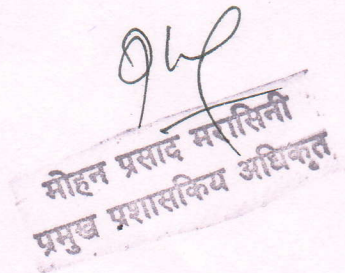 मोहन प्रसाद मरासिनी
प्रमुख प्रशासकिय अधिकृत